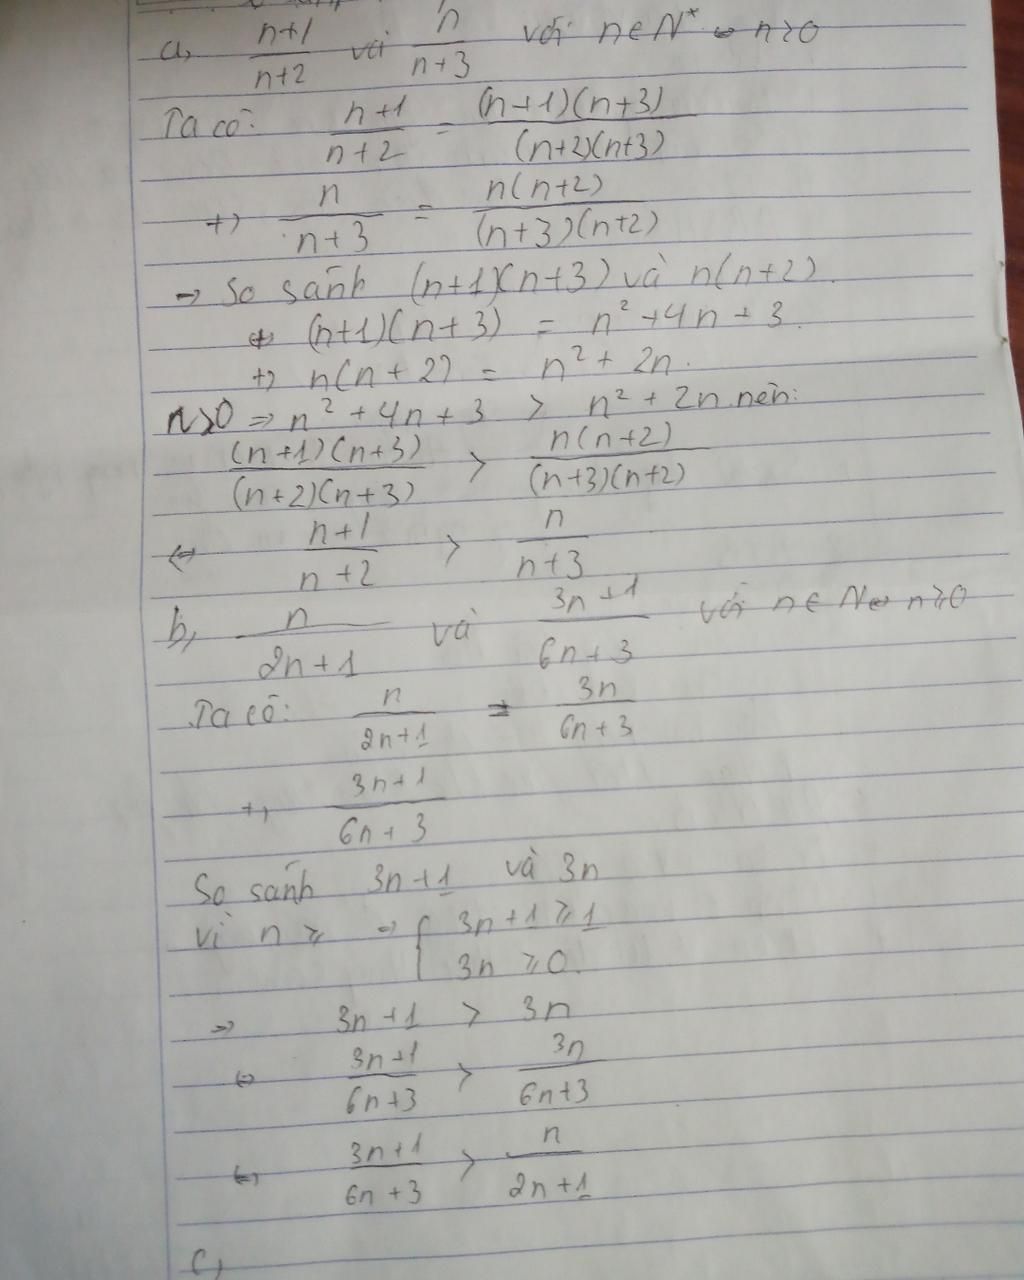 a, \frac{n+1}{n+2} và \frac{n}{n+3} với n ∈ N* ⇔ n > 0
Ta có: \frac{n+1}{n+2} = \frac{(n+1)(n+3)}{(n+2)(n+3)}
+) \frac{n}{n+3} = \frac{n(n+2)}{(n+3)(n+2)}
→ So sánh (n+1)(n+3) và n(n+2).
+) (n+1)(n+3) = n² + 4n + 3.
+) n(n+2) = n² + 2n.
n>0 ⇒ n² + 4n + 3 > n² + 2n nên:
\frac{(n+1)(n+3)}{(n+2)(n+3)} > \frac{n(n+2)}{(n+3)(n+2)}
⇔ \frac{n+1}{n+2} > \frac{n}{n+3}
b, \frac{n}{2n+1} và \frac{3n+1}{6n+3} với n ∈ N ⇔ n ≥ 0
Ta có: \frac{n}{2n+1} = \frac{3n}{6n+3}
+, \frac{3n+1}{6n+3}
So sánh 3n+1 và 3n
vì n ≥ ⇒ { 3n+1 ≥ 1
3n ≥ 0.
⇒ 3n+1 > 3n
⇔ \frac{3n+1}{6n+3} > \frac{3n}{6n+3}
⇔ \frac{3n+1}{6n+3} > \frac{n}{2n+1}
c,